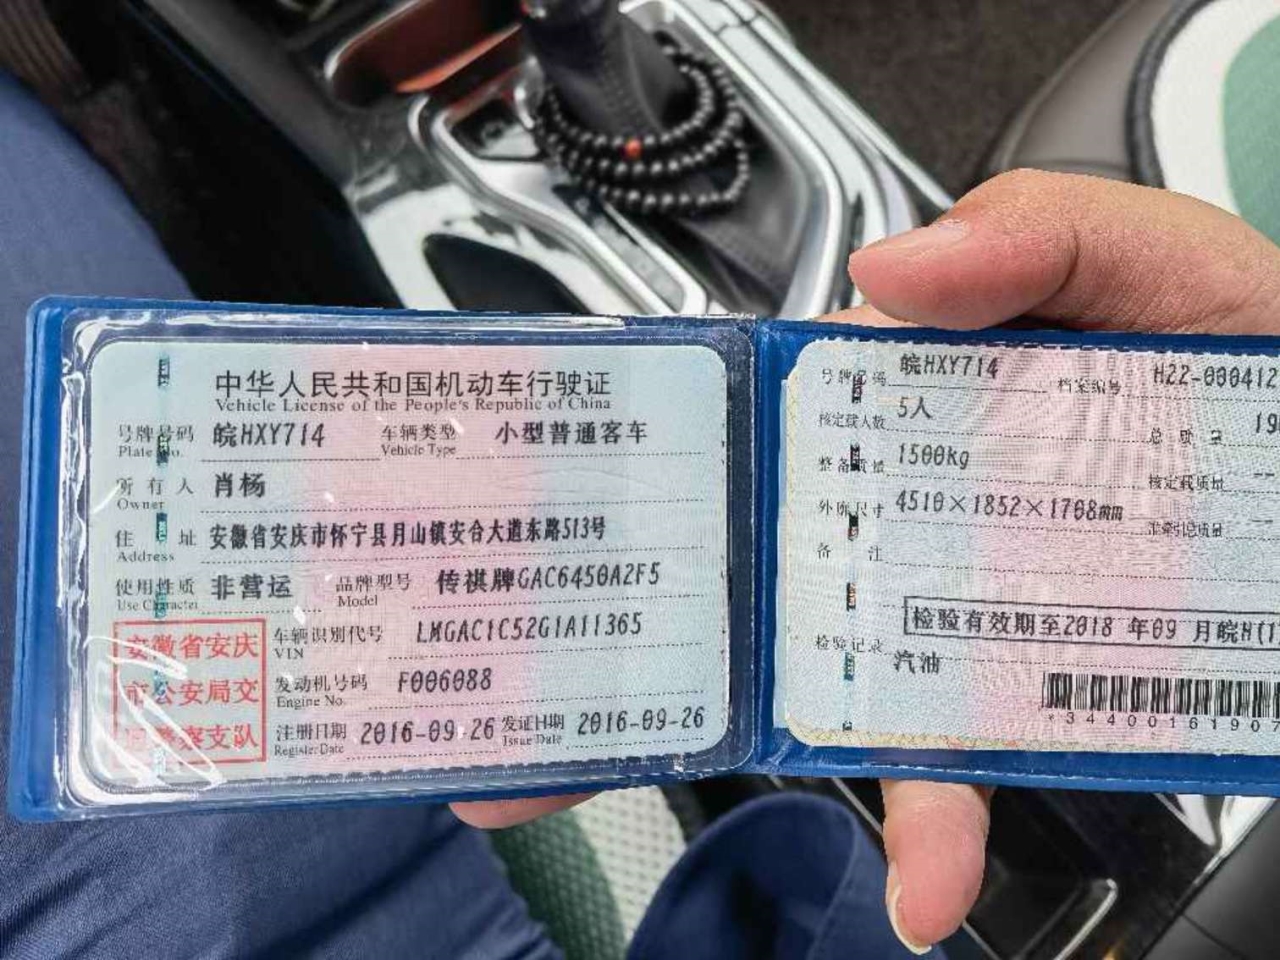 中华人民共和国机动车行驶证
Vehicle License of the People's Republic of China
号牌号码 皖HXY714 车辆类型 小型普通客车
Plate No. Vehicle Type
所有人 肖杨
Owner
住址 安徽省安庆市怀宁县月山镇安合大道东路513号
Address
使用性质 非营运 品牌型号 传祺牌GAC6450A2F5
Use Character Model
车辆识别代号 LMGAC1C52G1A11365
VIN
发动机号码 F006088
Engine No.
注册日期 2016-09-26 发证日期 2016-09-26
Register Date Issue Date
安徽省安庆
市公安局交
通警察支队
号牌号码 皖HXY714 档案编号 H22-000412
核定载人数 5人 总质量 19
整备质量 1500kg 核定载质量 --
外廓尺寸 4510×1852×1708mm 准牵引总质量 --
备注
检验有效期至2018 年09 月皖H(1
检验记录
汽油
*34400161907